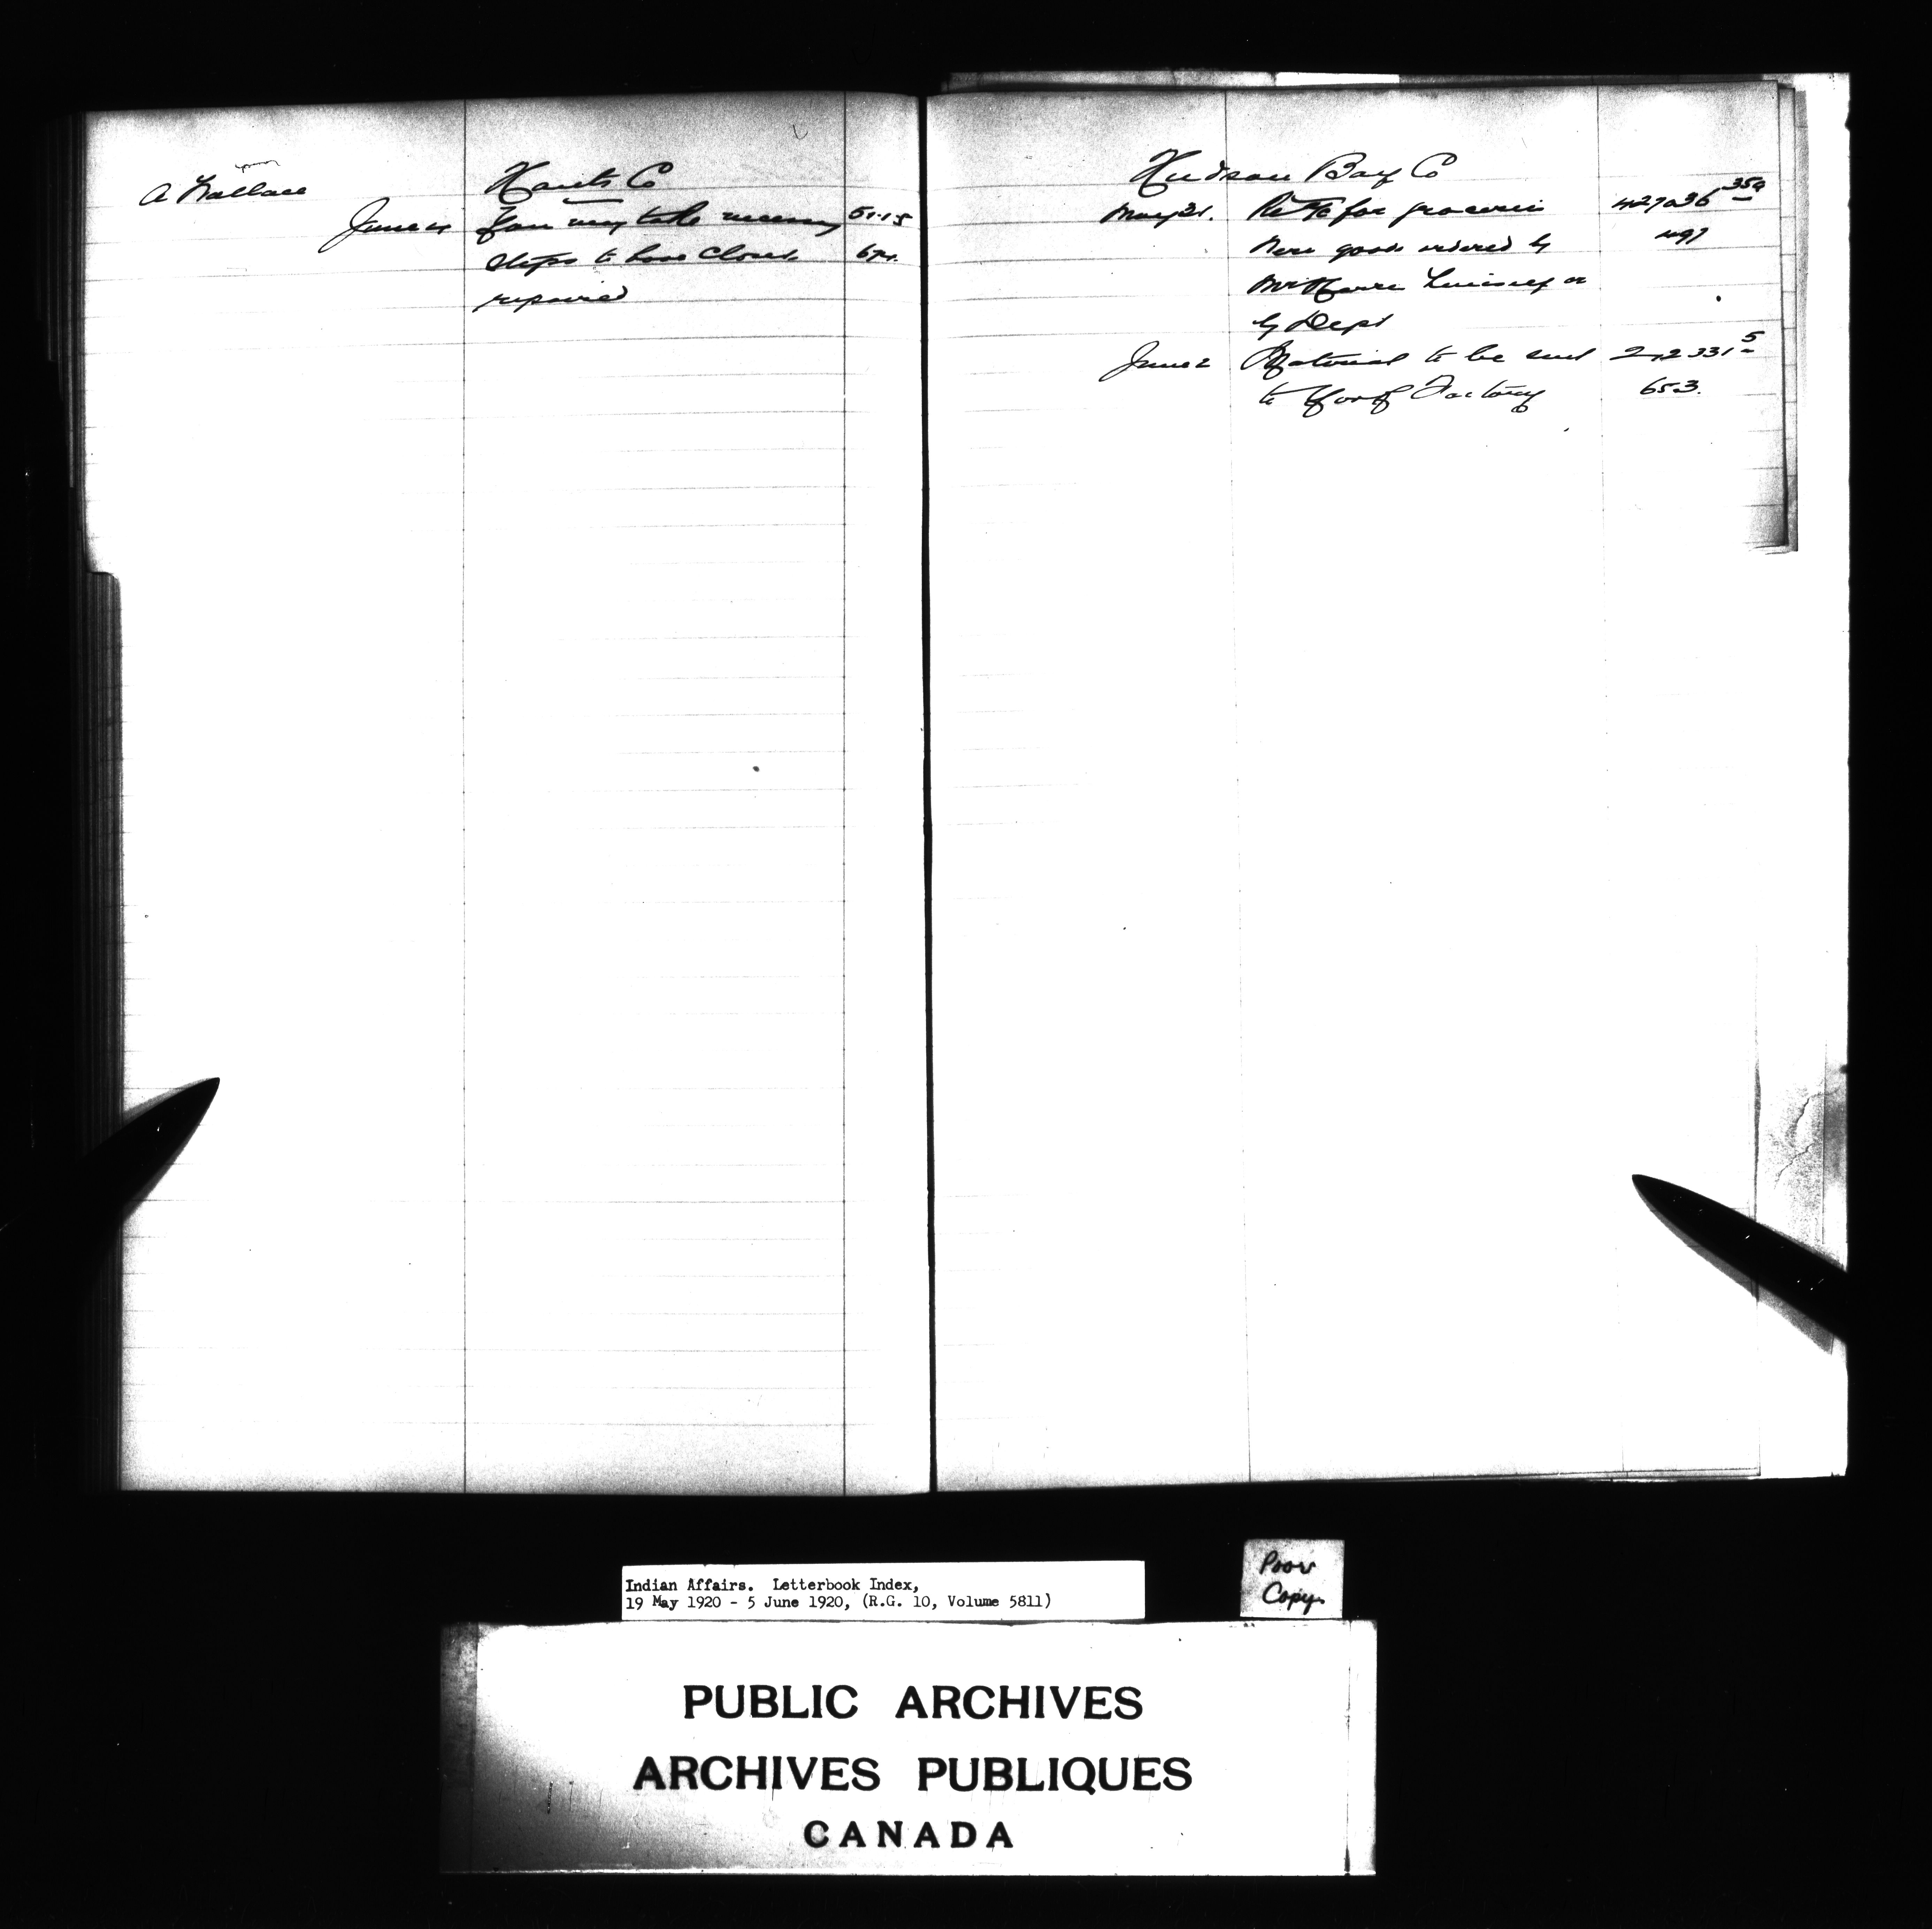 Hants Co
A Wallace
June 4 You may take necessary 51-15
steps to have closet 674.
repaired
Hudson Bay Co
May 31. Re for groceries 427036
Were goods ordered by 497
himself or
by Dept
June 2 Material to be sent 2,2331 5
to York Factory 653.
Indian Affairs. Letterbook Index,
19 May 1920 - 5 June 1920, (R.G. 10, Volume 5811)
Poor
Copy.
PUBLIC ARCHIVES
ARCHIVES PUBLIQUES
CANADA